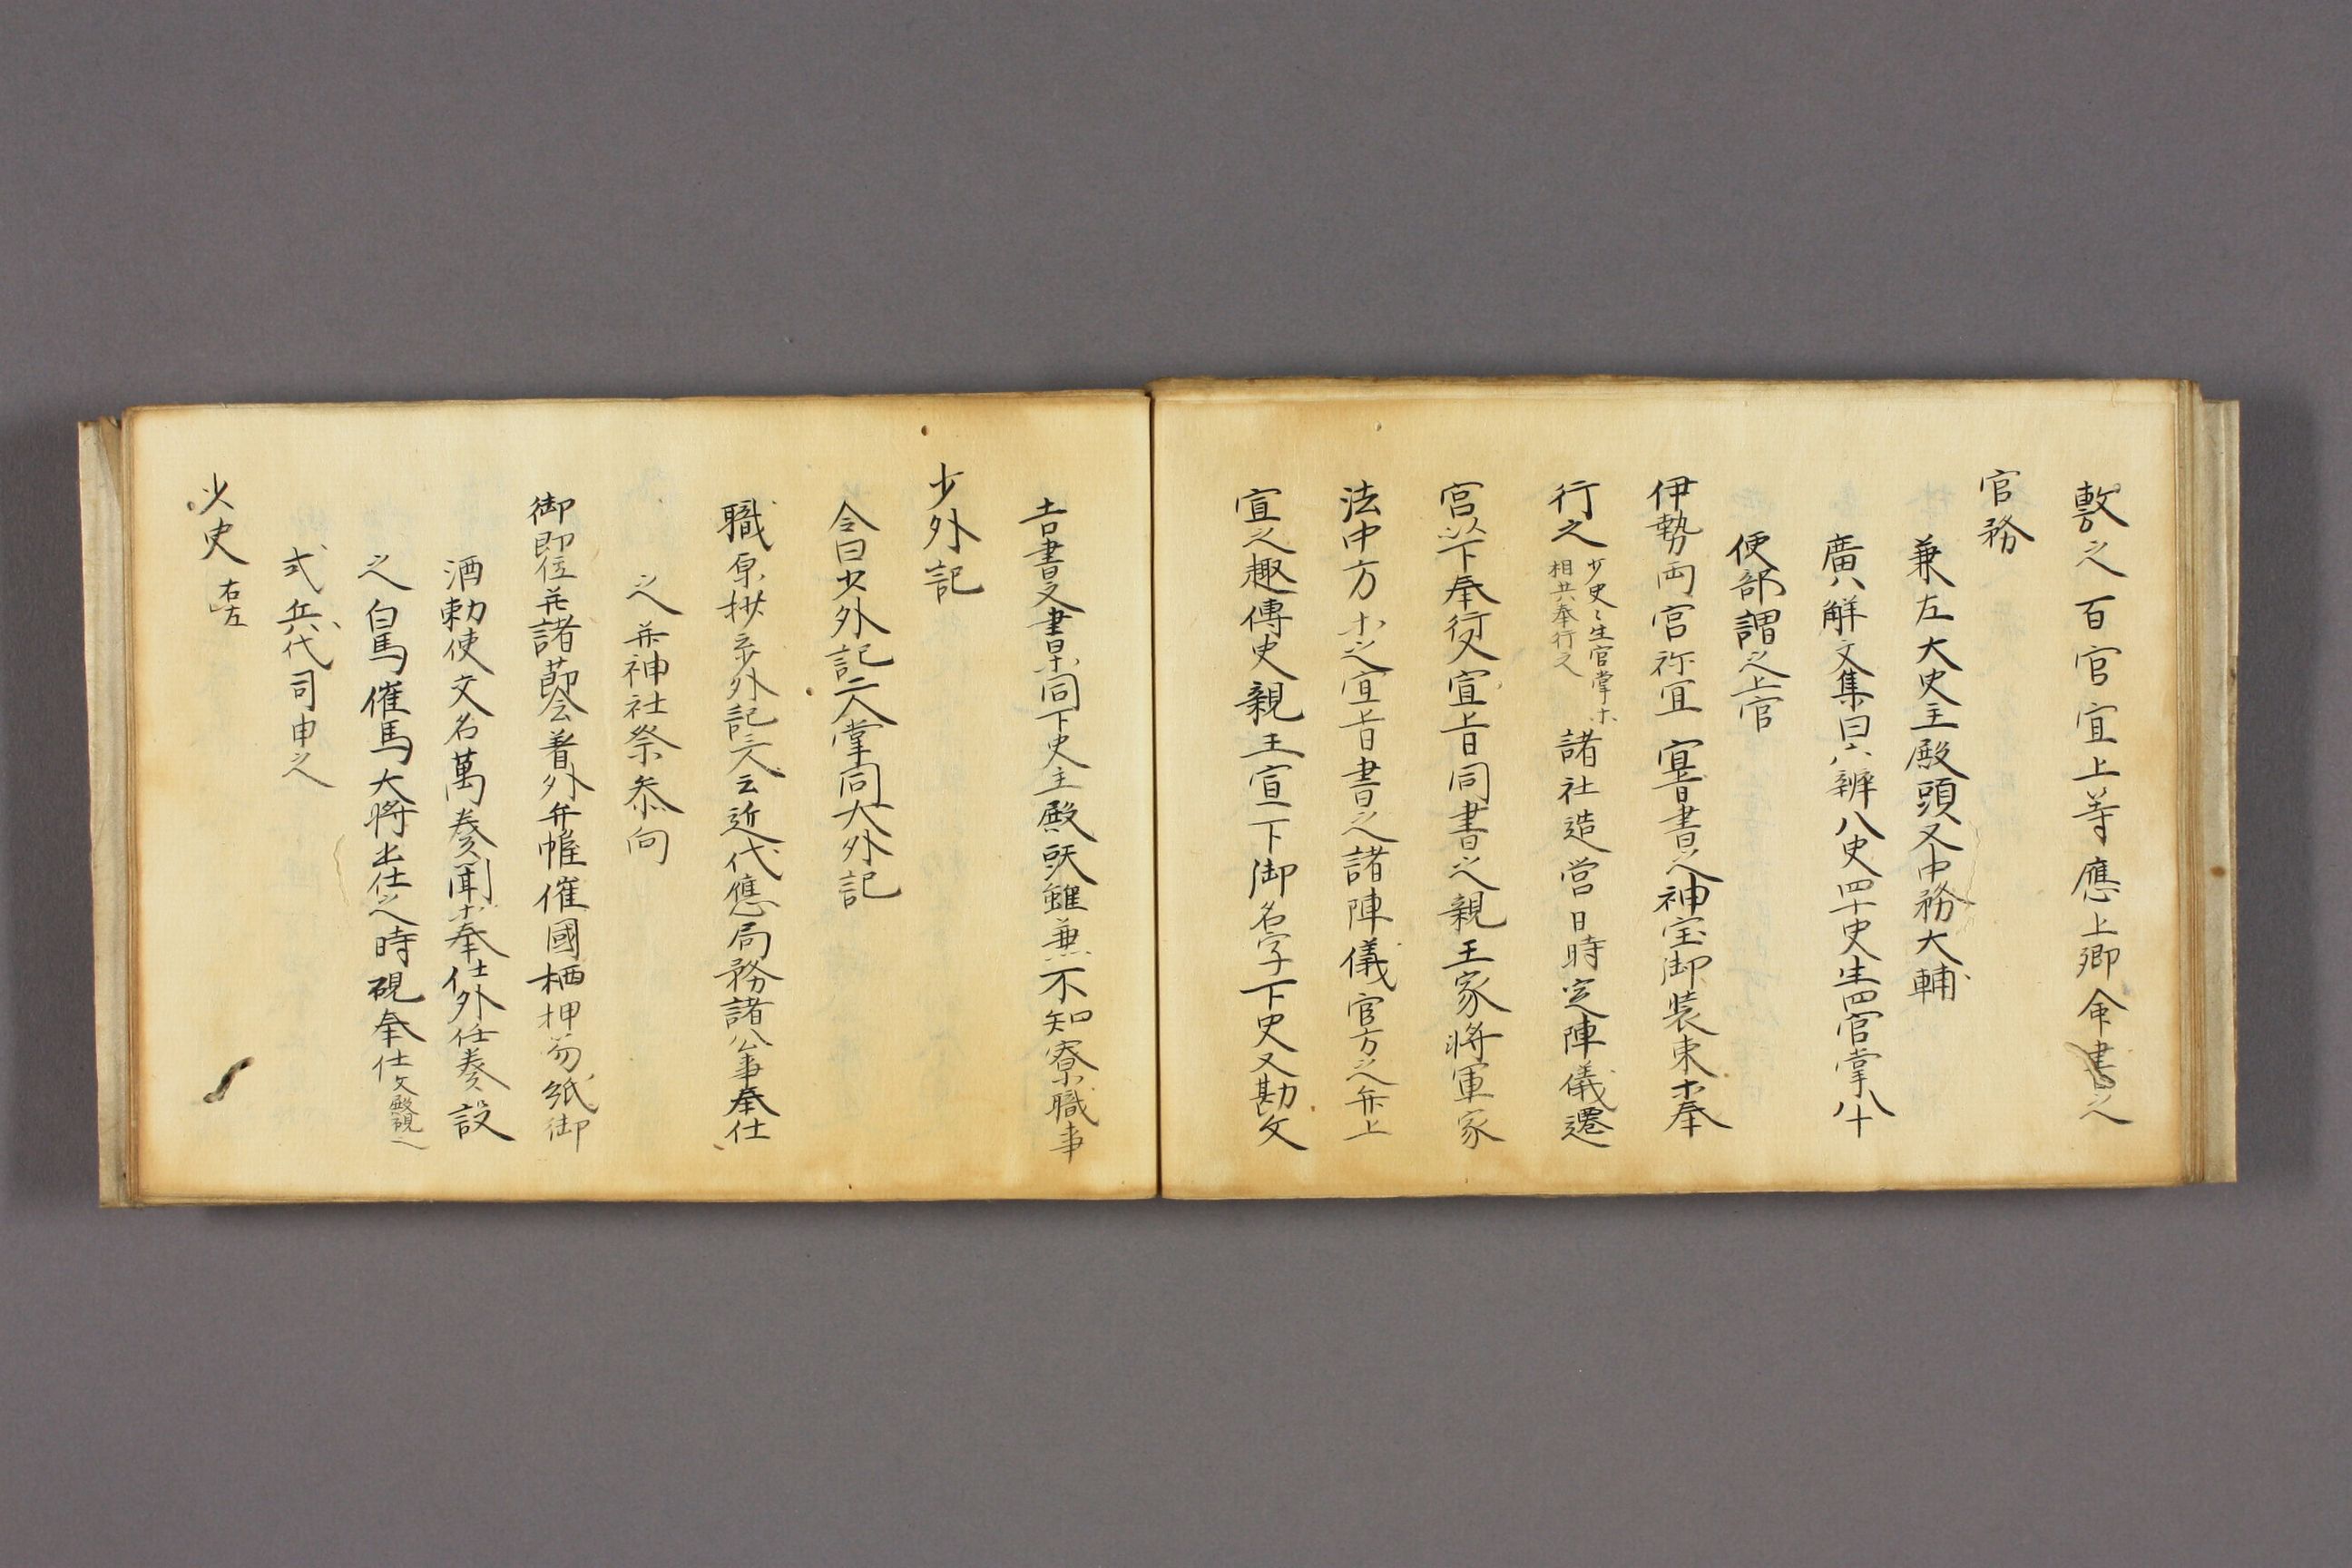 敷之百官宣上等應上卿命書之
官務
兼左大史主殿頭又中務大輔
廣八解文集曰六辨八史四十史生四官掌八十
使部謂之上官
伊勢両宮祢宜宣旨書之神宝御装束ホ奉
行之 少史〻生官掌ホ
相共奉行之
諸社造営日時定陣儀遷
宮以下奉行又宣旨同書之親王家将軍家
法中方ホ之宣旨書之諸陣儀官方之弁上
宣之趣傳史親王宣下御名字下史又勘文
吉書文書杲同下史主殿頭雖兼不知寮職事
少外記
令曰少外記二人掌同大外記
職原抄ニ外記六人云近代應局務諸公事奉仕
之并神社祭参向
御即位并諸節会着外弁幄催國栖押笏紙御
酒勅使交名萬奏聞ホ奉仕外任奏設
之白馬催馬大将出仕之時硯奉仕
式兵代司申之
少史 左
右